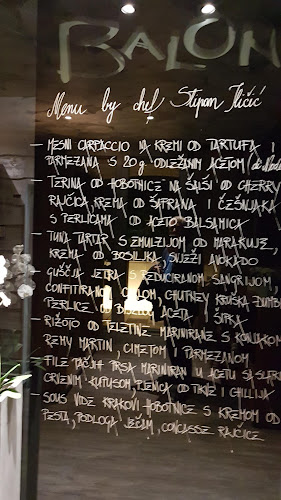 BALON
Menu by chef Stipan Iličić
- MESNI CARPACCIO NA KREMI OD TARTUFA I
PARMEZANA S 20 g. ODLEŽANIM ACETOM
- TERINA OD HOBOTNICE NA SALSI OD CHERRY
RAJČICA KREMA OD ŠAFRANA I ČEŠNJAKA
S PERLICAMA OD ACETO BALSAMICA
- TUNA TARTAR S EMULZIJOM OD MARAKUJE,
KREMA OD BOSILJKA SVJEŽI AVOKADO
- GUŠČJA JETRA S REDUCIRANOM SANGRIJOM,
CONFITIRANI CHUTNEY KRUŠKA ĐUMBIR
PERLICE OD BIJELOG ACETA, ŠIPKA
- RIŽOTO OD TELETINE MARINIRANE S KONJAKOM
REMY MARTIN, CIMETOM I PARMEZANOM
- FILE PAČJIH PRSA MARINIRAN U ACETU SA SLATKO
CRVENIM KUPUSOM, PJENICA OD TIKVE I CHILLIJA
- SOUS VIDE KRAKOVI HOBOTNICE S KREMOM OD
PESTA, PODLOGA JEČAM, CONCASSE RAJČICE